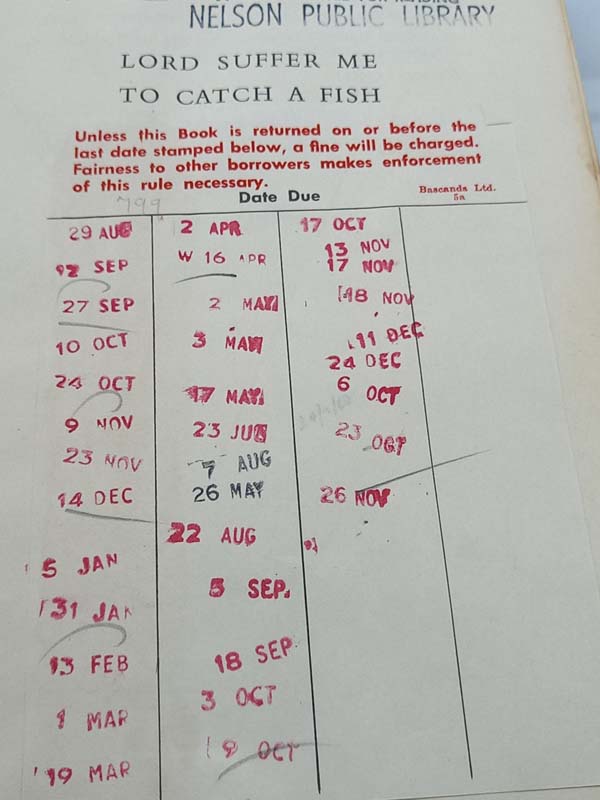 NELSON PUBLIC LIBRARY
LORD SUFFER ME
TO CATCH A FISH
Unless this Book is returned on or before the
last date stamped below, a fine will be charged.
Fairness to other borrowers makes enforcement
of this rule necessary.
799
Date Due
Bascands Ltd.
5a
29 AUG
12 SEP
27 SEP
10 OCT
24 OCT
9 NOV
23 NOV
14 DEC
5 JAN
31 JAN
13 FEB
1 MAR
19 MAR
2 APR
W 16 APR
2 MAY
3 MAY
17 MAY
23 JUN
7 AUG
26 MAY
22 AUG
5 SEP.
18 SEP
3 OCT
19 OCT
17 OCT
13 NOV
17 NOV
18 NOV
11 DEC
24 DEC
6 OCT
23 OCT
26 NOV